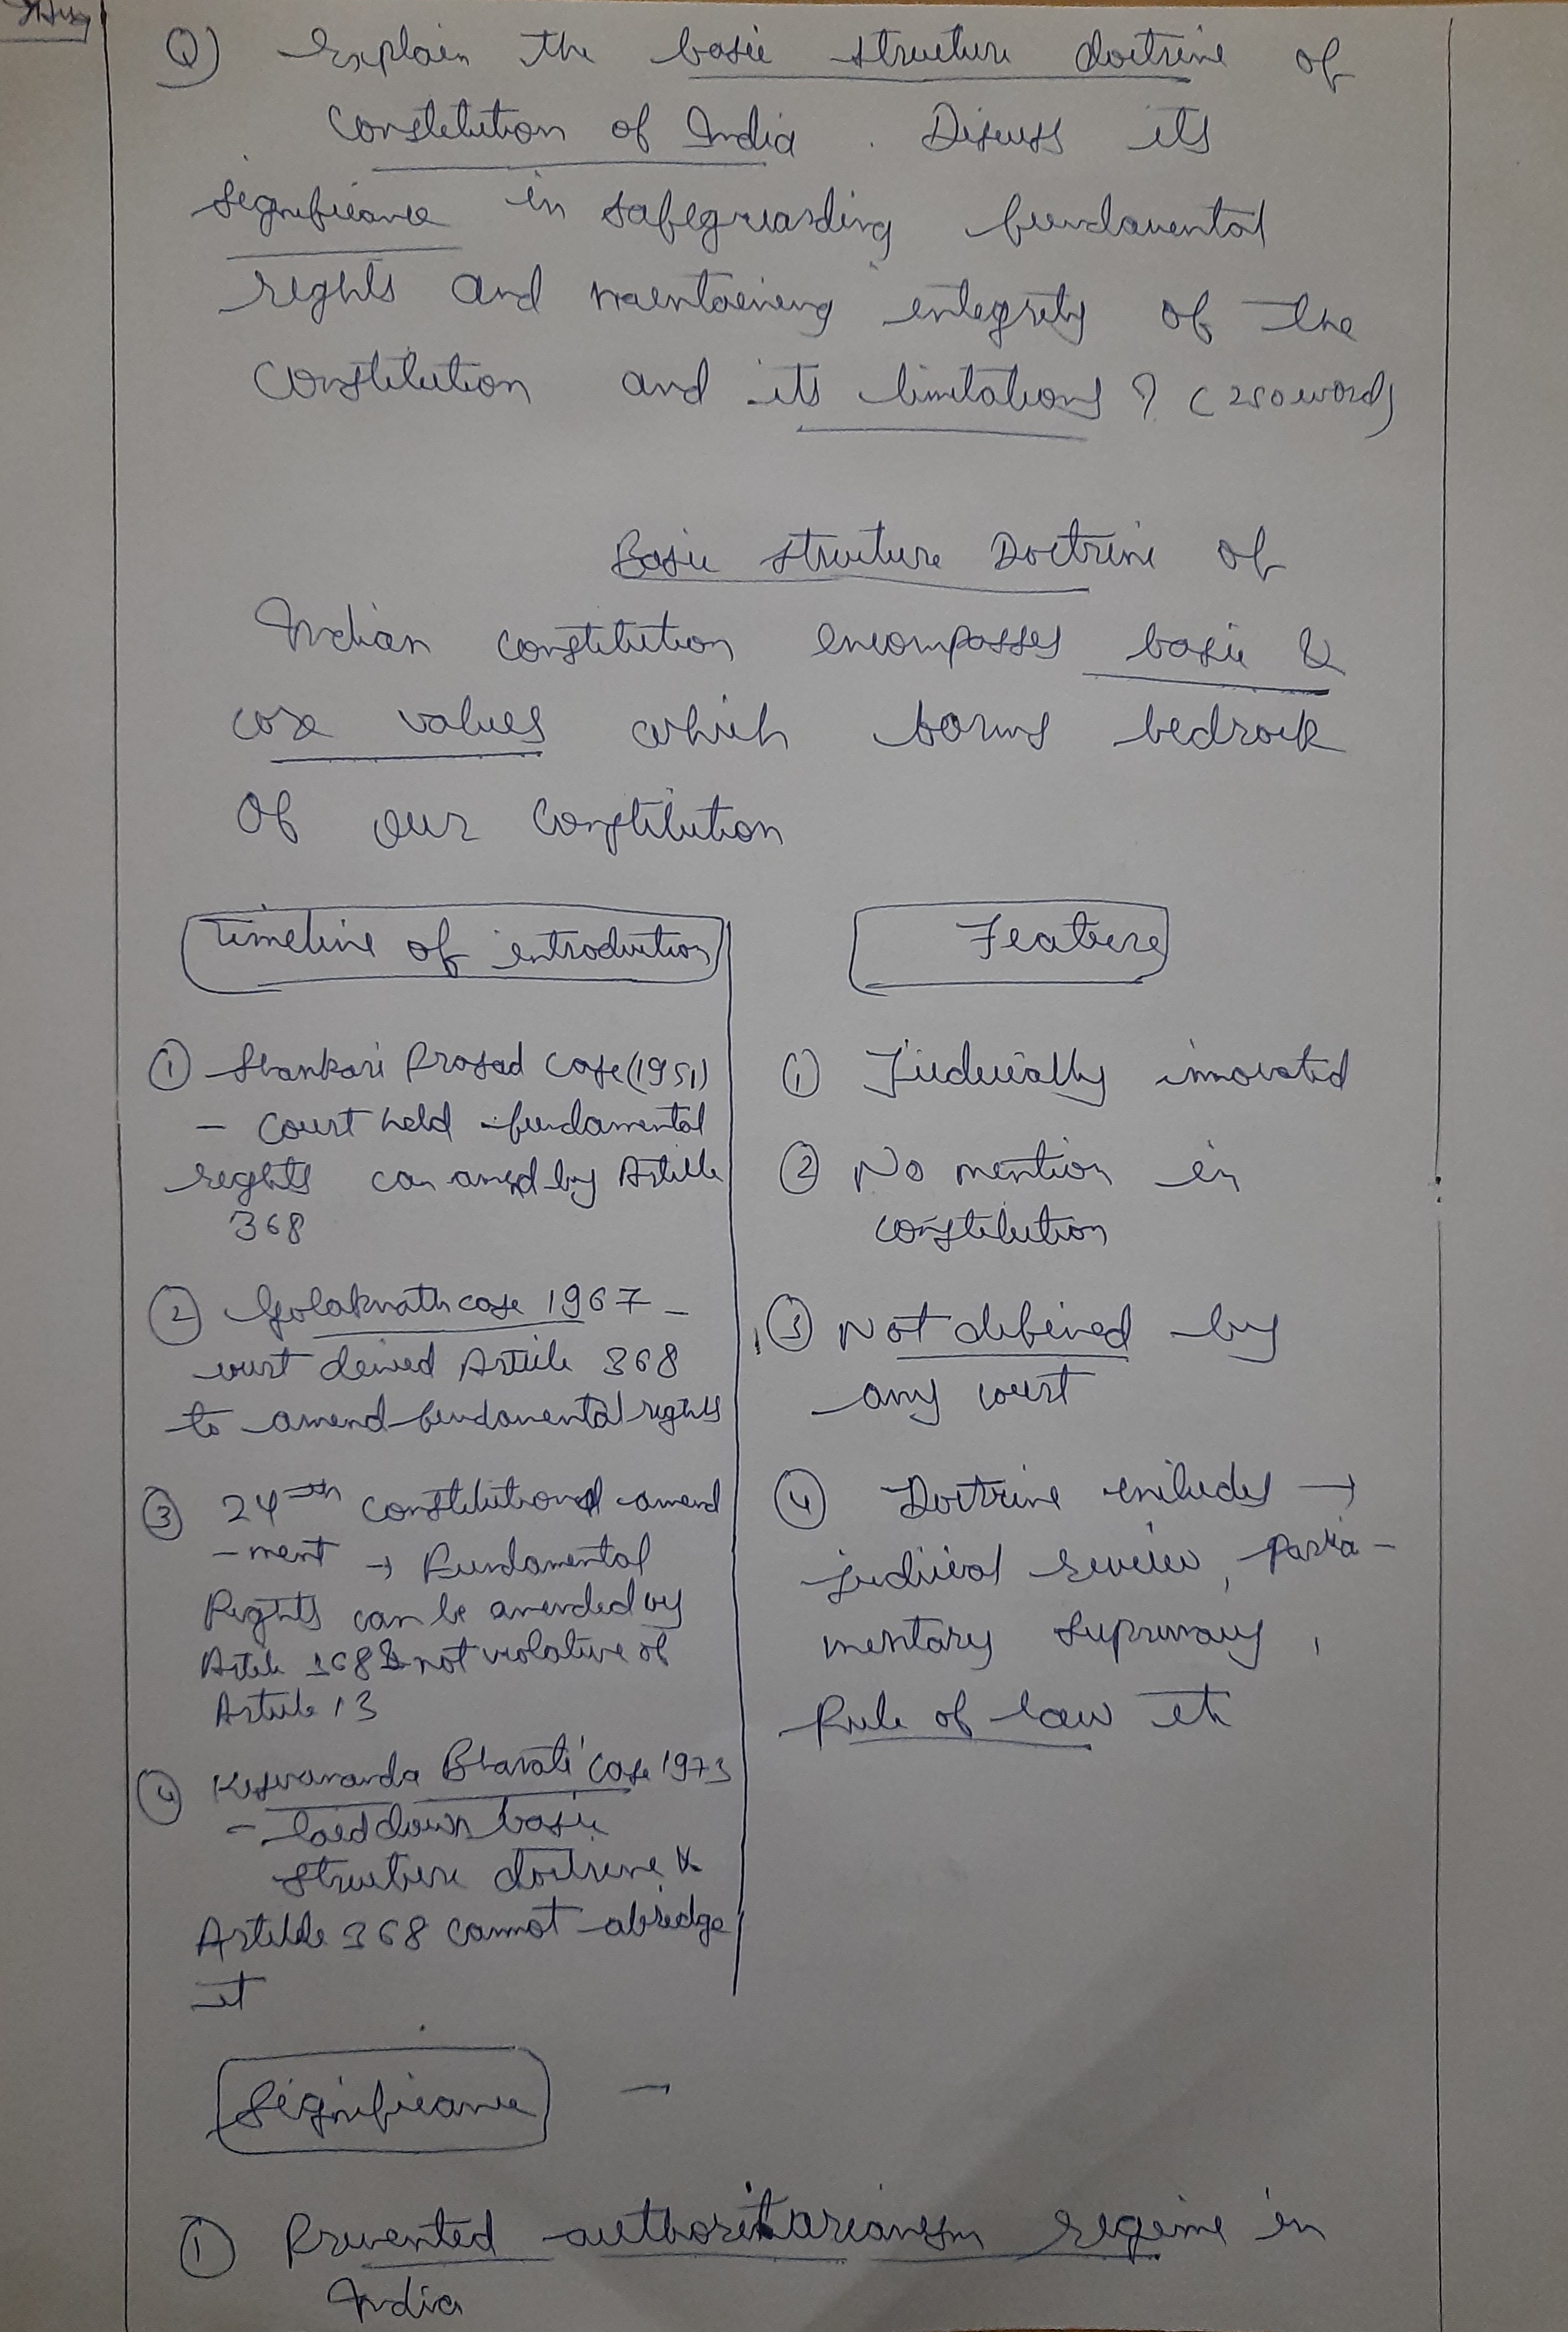 Q) Explain the basic structure doctrine of
Constitution of India . Discuss its
significance in safeguarding fundamental
rights and maintaining integrity of the
Constitution and its limitations ? (250 words)
Basic structure Doctrine of
Indian constitution encompasses basic &
core values which forms bedrock
of our Constitution
Timeline of introduction
① Shankari Prasad Case (1951)
- Court held fundamental
rights can amend by Article
368
② Golaknath case 1967 -
court denied Article 368
to amend fundamental rights
③ 24th Constitutional amend
-ment → Fundamental
Rights can be amended by
Article 368 & not violative of
Article 13
④ Kesvananda Bharati case 1973
- laid down basic
structure doctrine &
Article 368 cannot abridge
it
Feature
① Judicially innovated
② No mention in
constitution
③ Not defined by
any court
④ Doctrine includes →
judicial review, Parlia-
mentary supremacy,
Rule of law etc
Significance →
① Prevented authoritarianism regime in
India